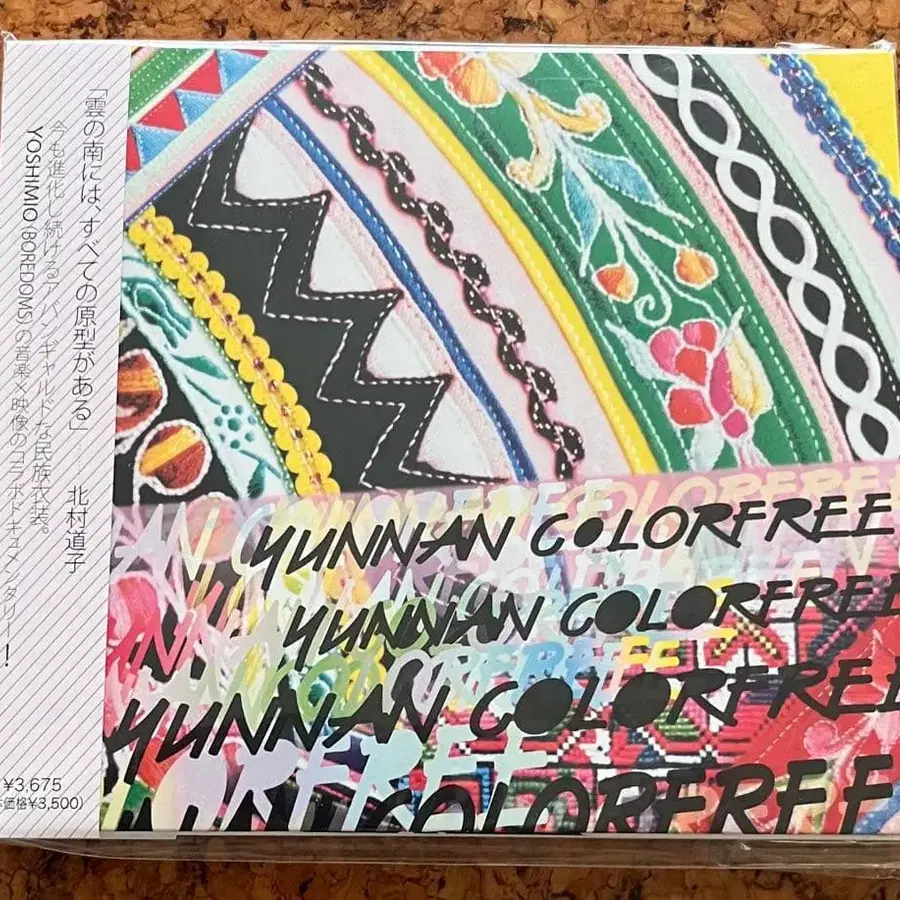 「雲の南には、すべての原型がある」 北村道子
今も進化し続けるアバンギャルドな民族衣装。
YOSHIMIO(BOREDOMS)の音楽×映像のコラボドキュメンタリー!
¥3,675
価格¥3,500)
YUNNAN COLORFREE
YUNNAN COLORFREE
YUNNAN COLORFREE
COLORFREE